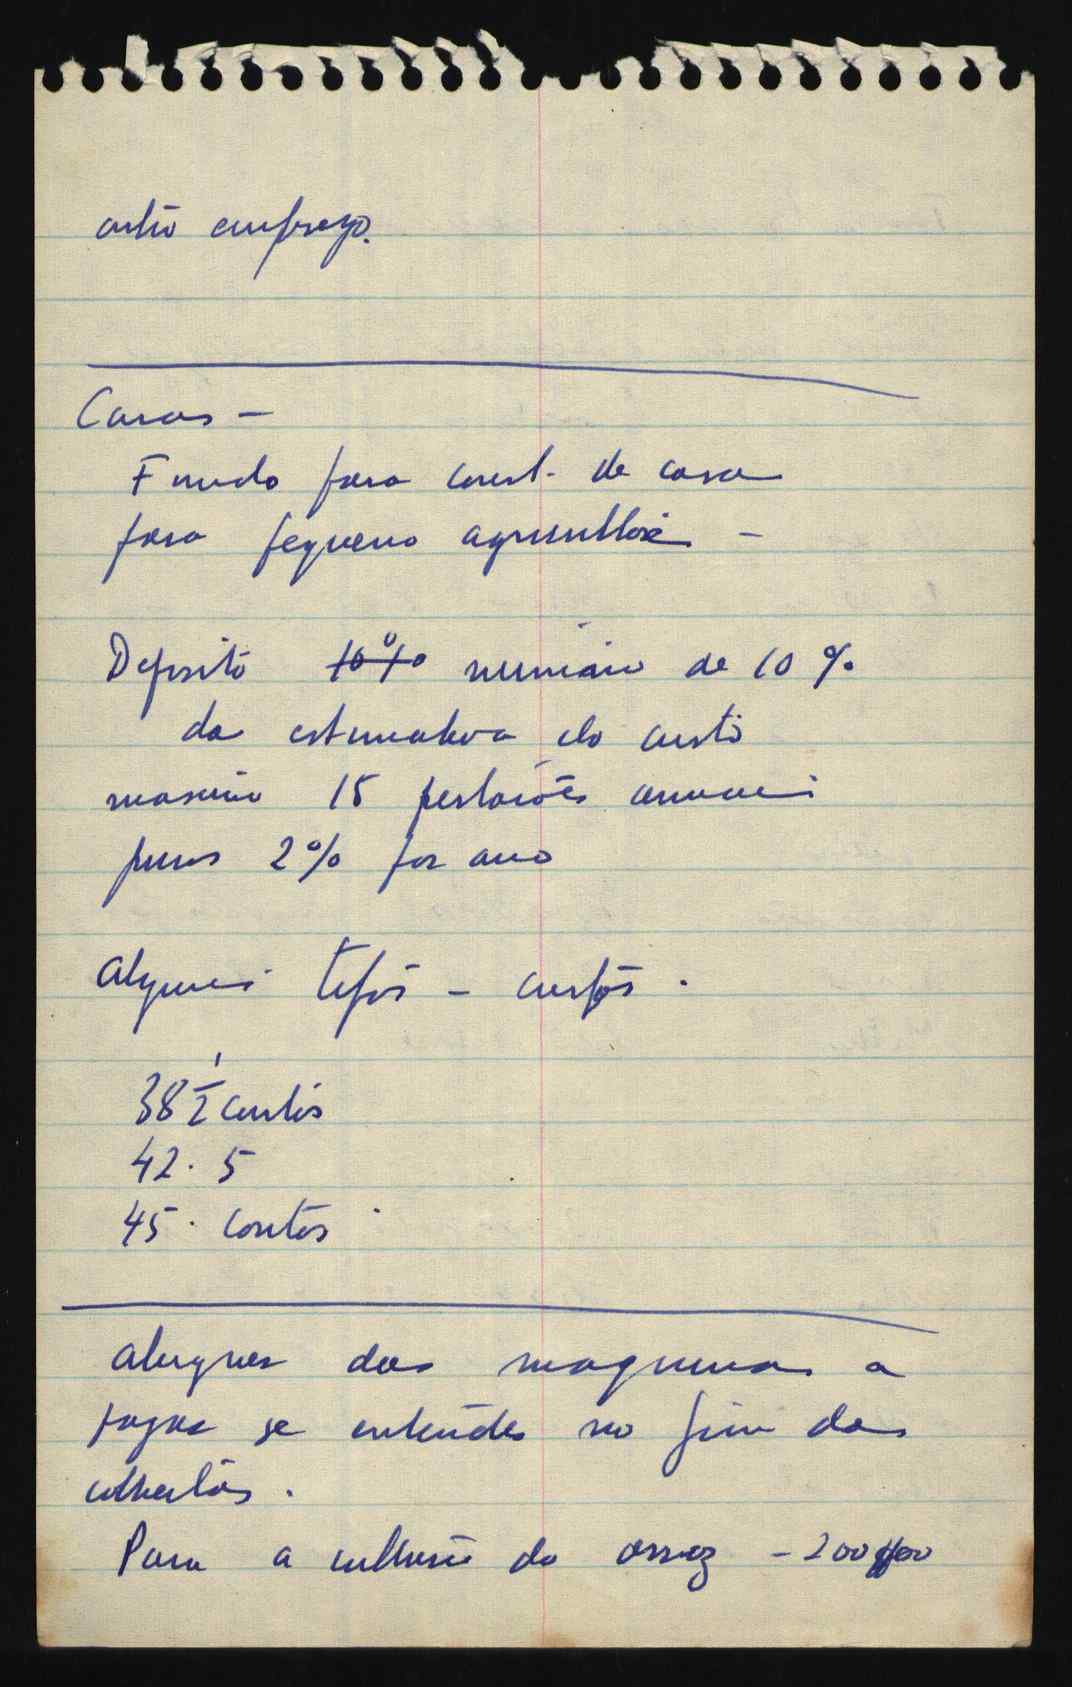 outro emprego.
Casas -
Fundo para const. de casa
para pequeno agricultor -
Deposito 10% minimo de 10%
da estimativa do custo
maximo 15 prestações anuais
juros 2% por ano
Alguns tipos -
38 1/2 contos
42. 5
45. contos
aluguer das maquinas a
pagar se entender no fim das
colheitas.
Para a cultura do arroz - 200$00